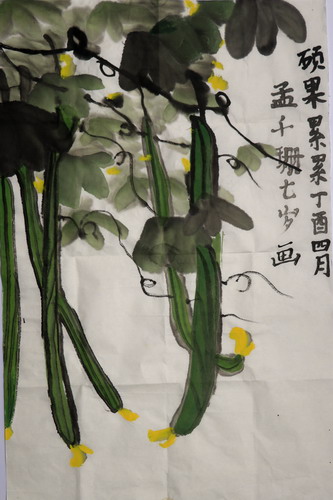 硕果累累丁酉四月
孟千珊七岁画